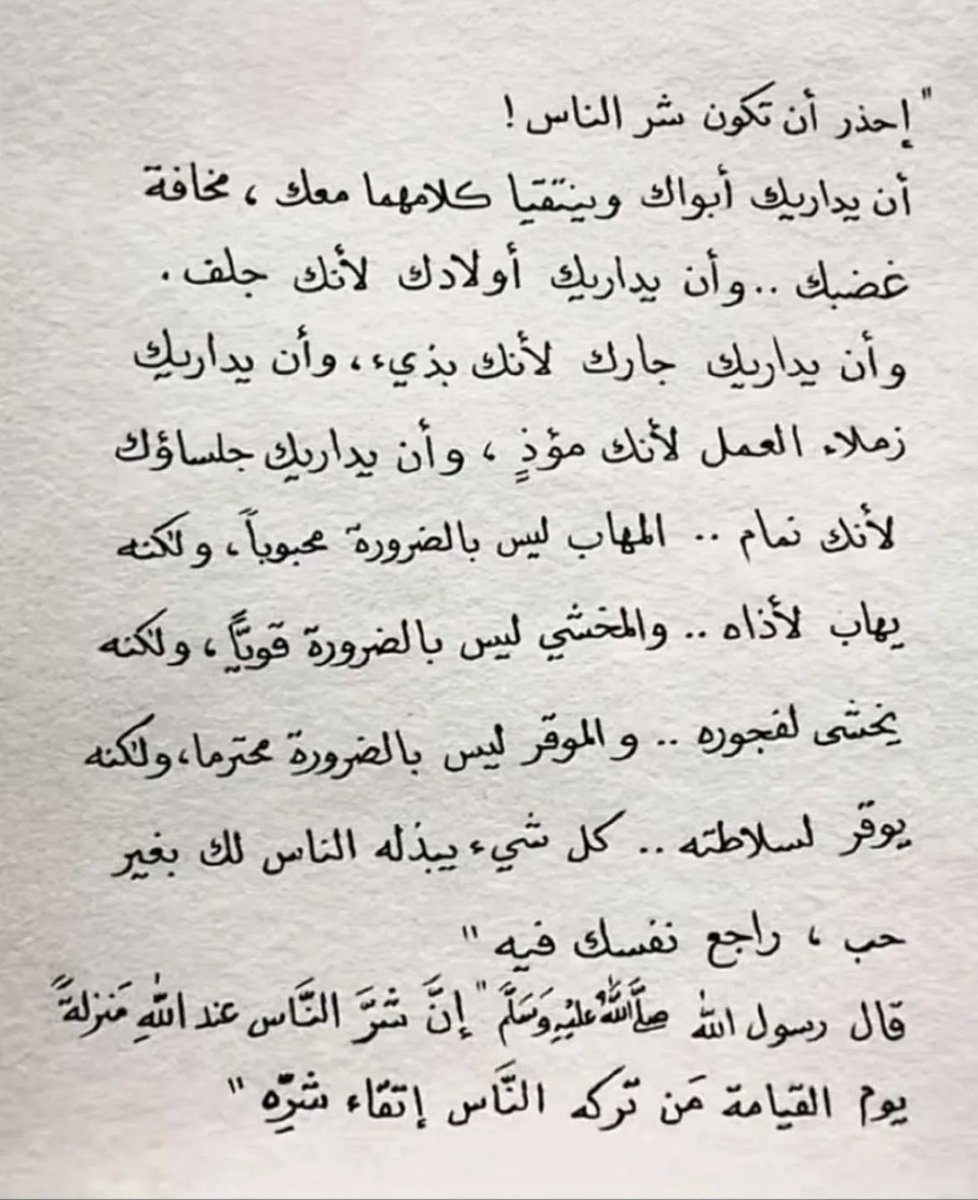 "إحذر أن تكون شر الناس !
أن يداريك أبواك وينتقيا كلامهما معك ، مخافة
غضبك .. وأن يداريك أولادك لأنك جلف .
وأن يداريك جارك لأنك بذيء ، وأن يداريك
زملاء العمل لأنك مؤذٍ ، وأن يداريك جلساؤك
لأنك نمام .. المهاب ليس بالضرورة محبوباً ، ولكنه
يهاب لأذاه .. والمخشي ليس بالضرورة قويًّا ، ولكنه
يخشى لفجوره .. والموقر ليس بالضرورة محترما، ولكنه
يوقر لسلاطته .. كل شيء يبذله الناس لك بغير
حب ، راجع نفسك فيه "
قال رسول الله صلَّى اللهُ عليْهِ وَسَلَّمَ " إنَّ شَرَّ النَّاس عند اللهِ مَنزلةً
يوم القيامة مَن تركه النَّاس إتقاء شرِّهِ "